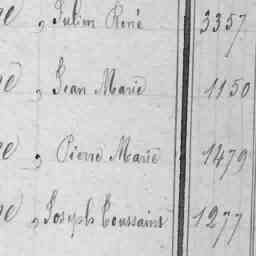 e, Julien René 3357
e, Jean Marie 1150
e, Pierre Marie 1479
e, Joseph Toussaint 1277